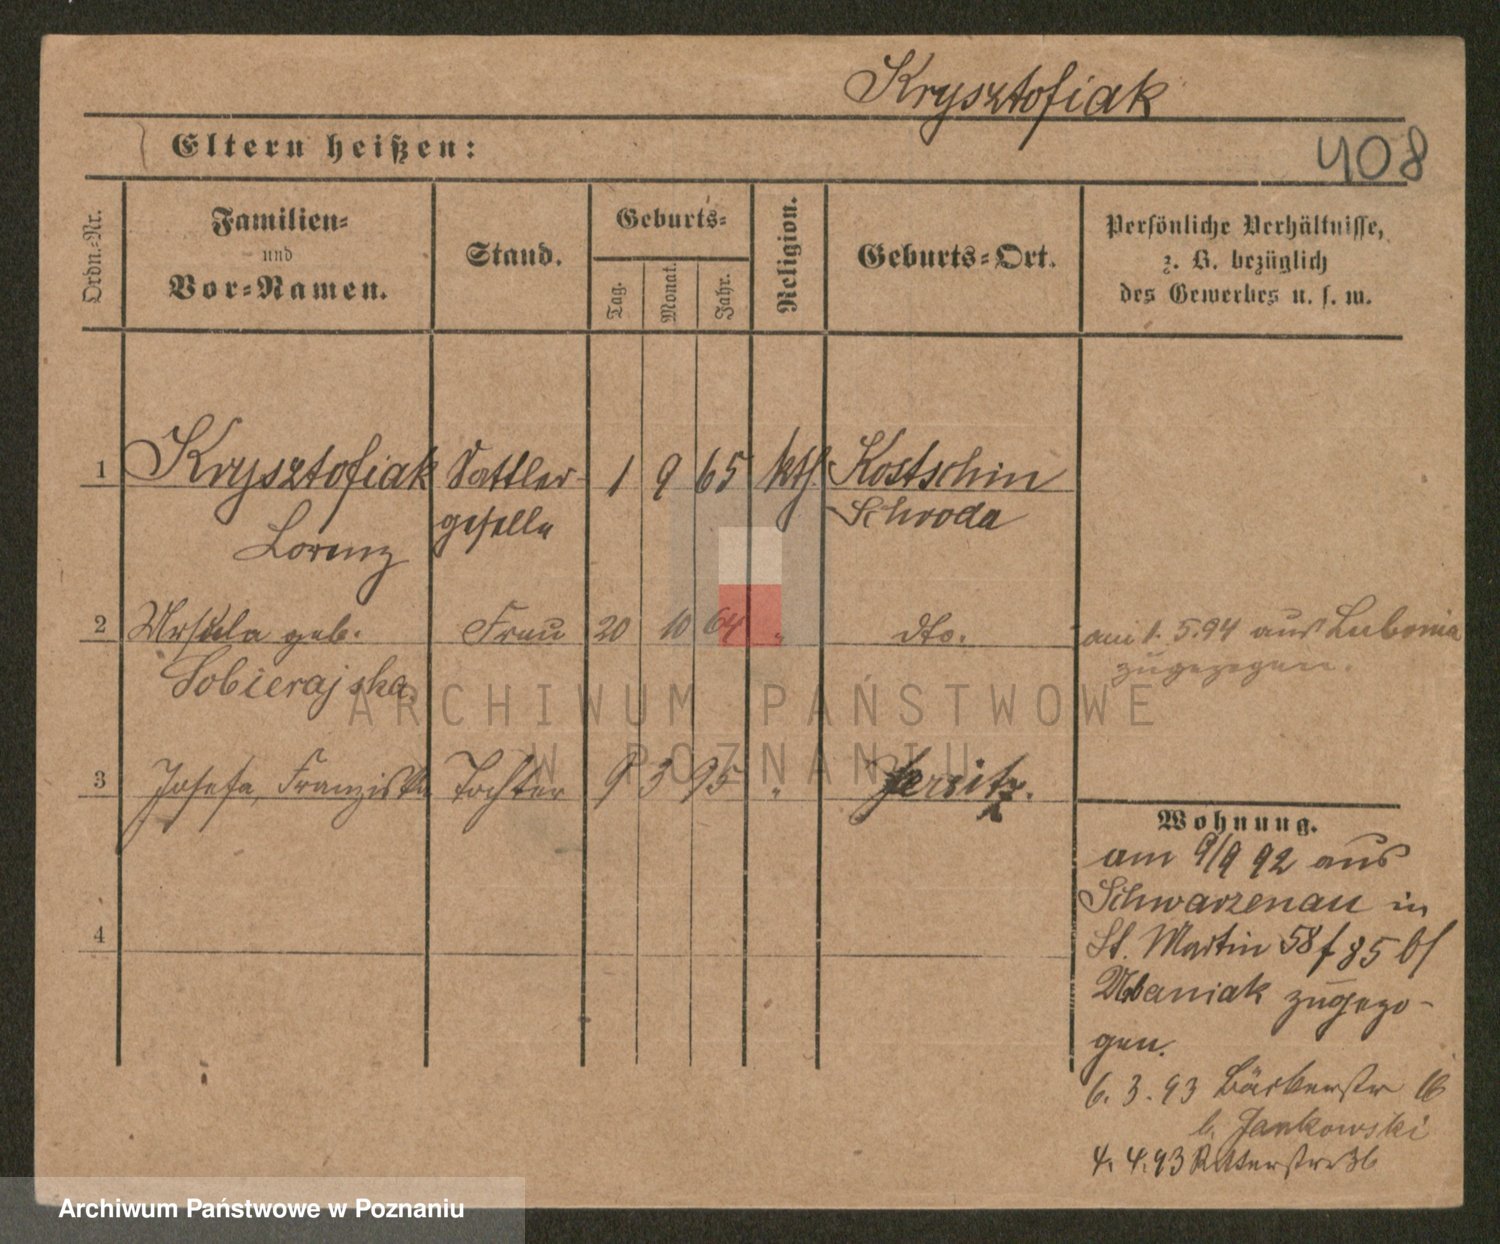 Krysztofiak
408
Eltern heißen:
Ordn.-Nr.
Familien-
und
Vor-Namen.
Stand.
Geburts-
Tag.
Monat.
Jahr.
Religion.
Geburts-Ort.
Persönliche Verhältnisse,
z. B. bezüglich
des Gewerbes u. s. w.
1 Krysztofiak Sattler- 1 9 65 kth. Kostschin
Lorenz geselle Schroda
2 Ursula geb. Frau 20 10 64 " dto. am 1. 5.94 aus Lubonia
Sobierajska zugezogen.
3 Josefa, Franziska Tochter 9 3 95 " Jersitz.
Wohnung.
am 9/9 92 aus
Schwarzenau in
St. Martin 58 f 85 bf
Urbaniak zugezo-
gen.
4
6. 3. 93 Bäckerstr 16
b. Jankowski
4. 4. 93 Ritterstr 36
ARCHIWUM PAŃSTWOWE
W POZNANIU
Archiwum Państwowe w Poznaniu